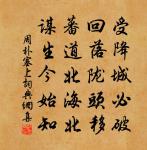 受降城必破
回落陇頭移
蕃道北海北
謀生今始知
周朴塞上詞典網集